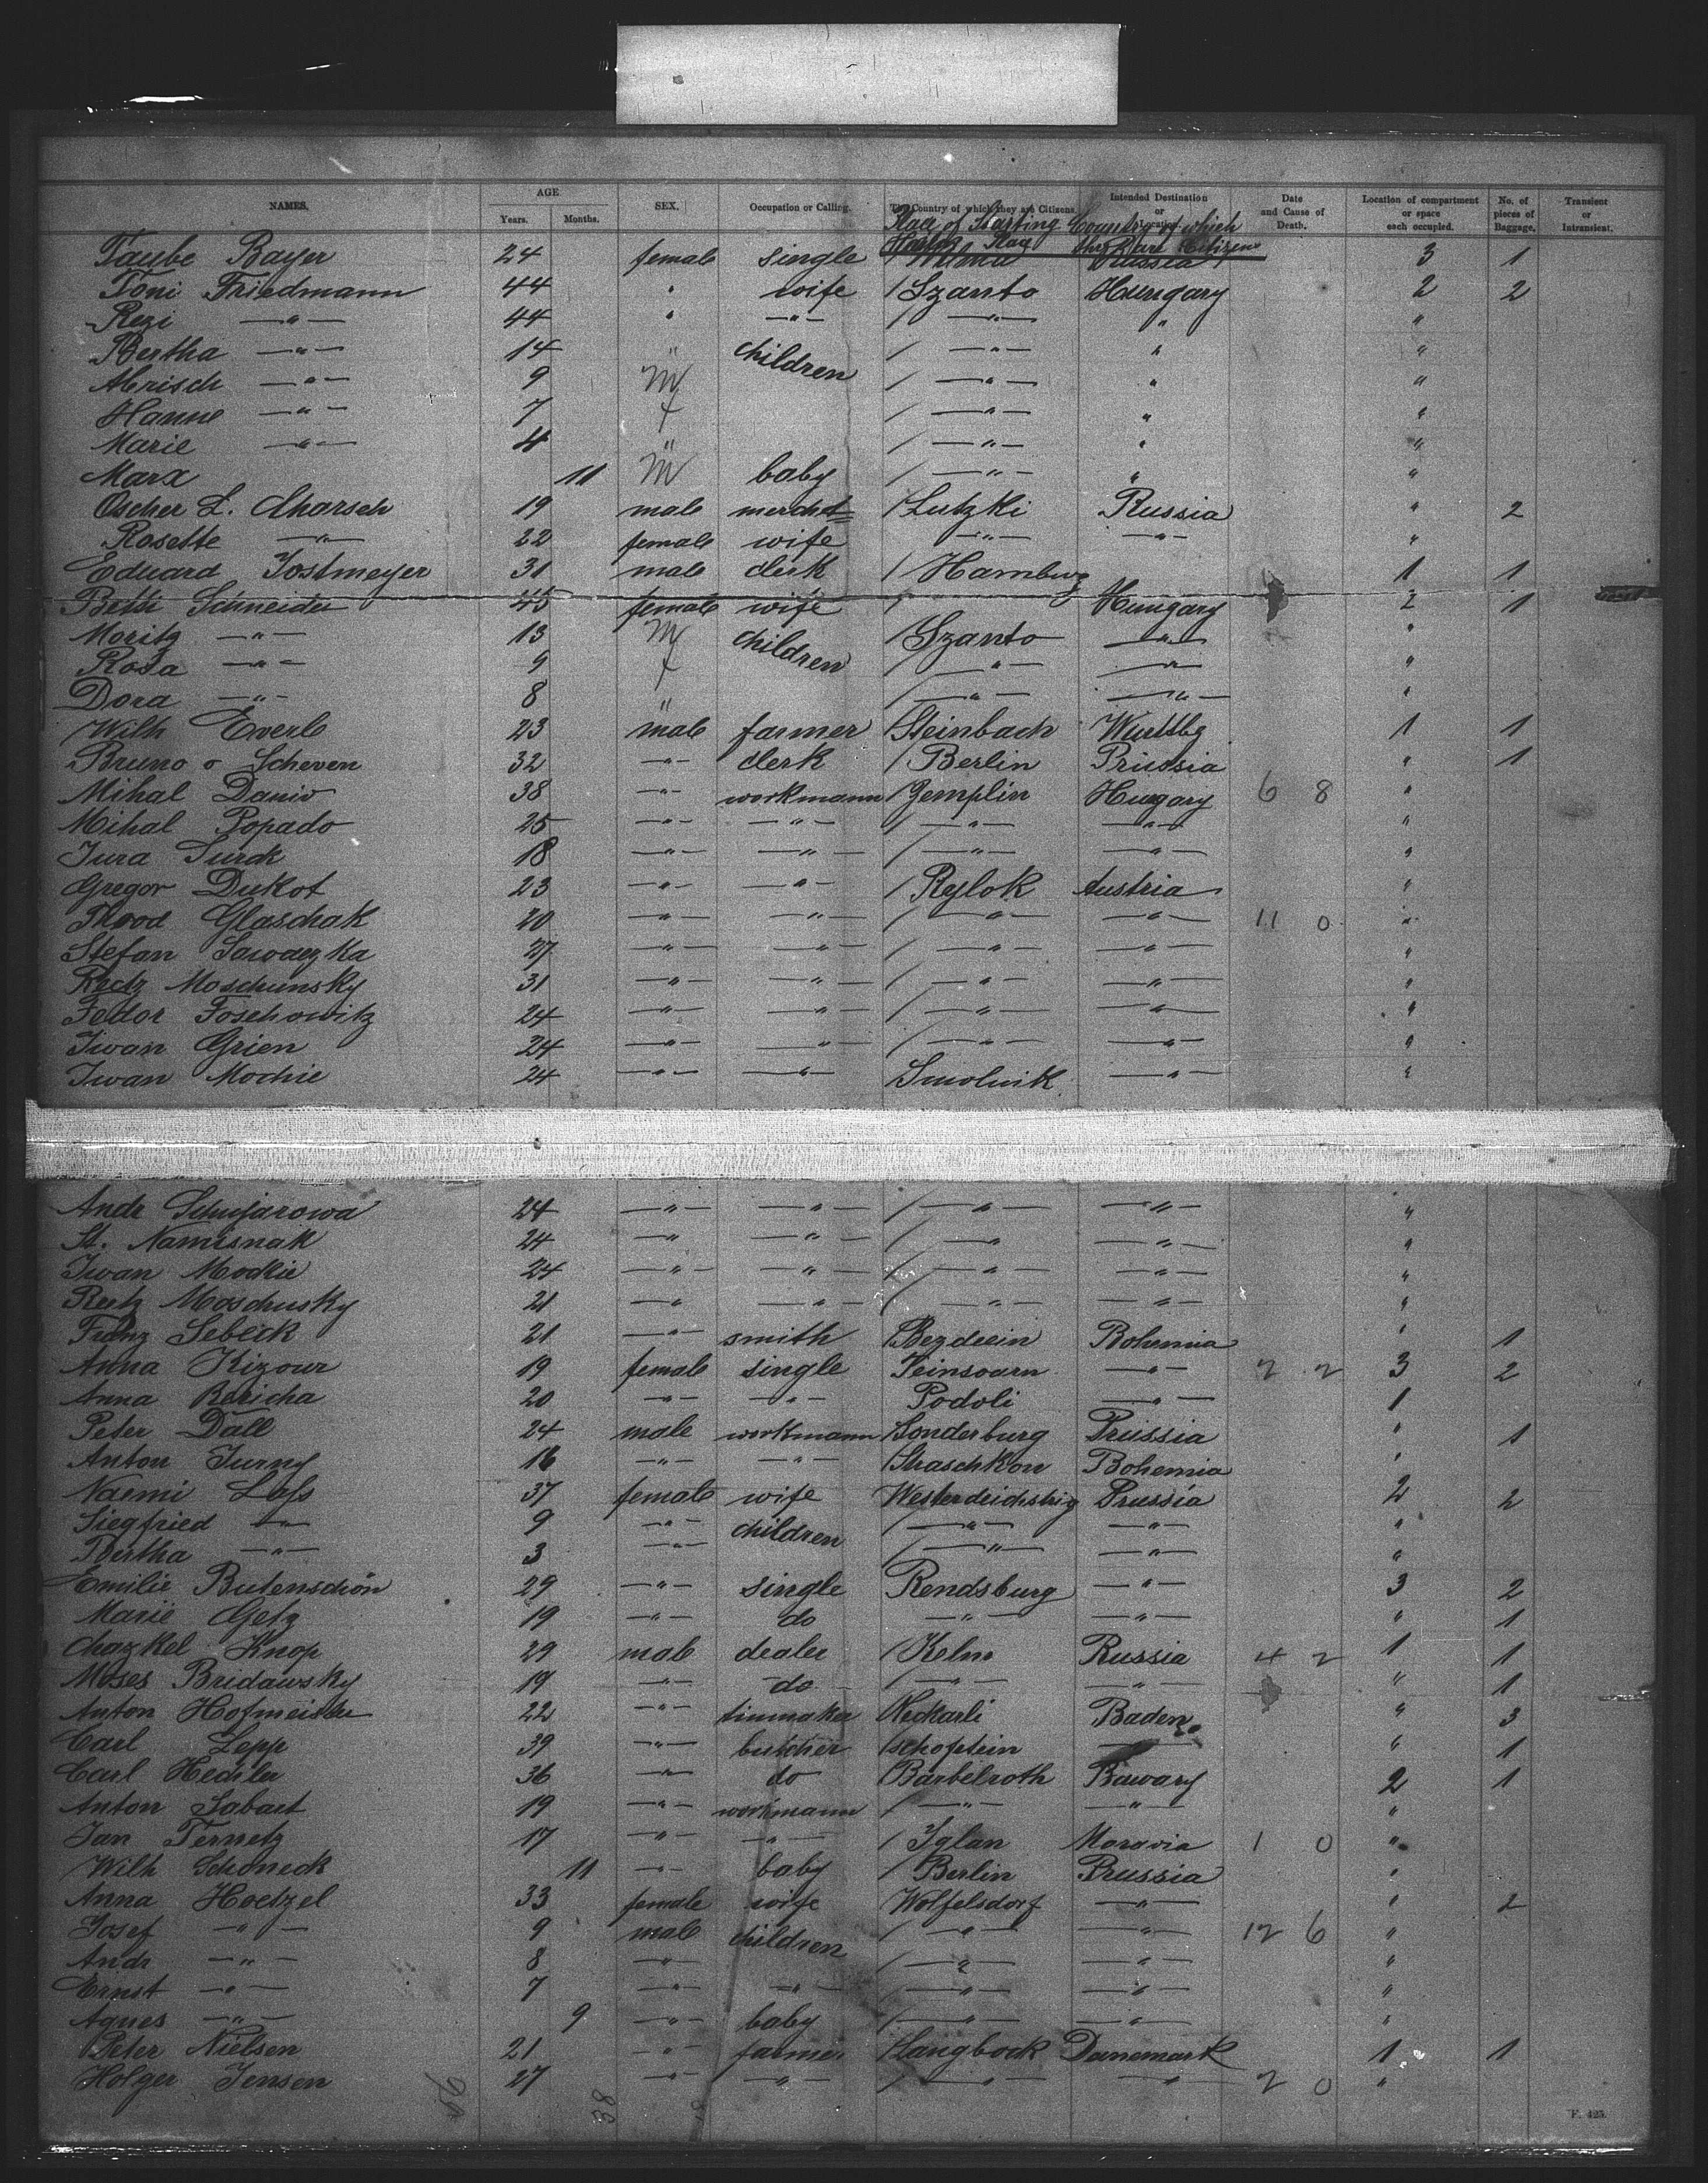 NAMES. AGE Years. Months. SEX. Occupation or Calling. The Country of which they are Citizens. Intended Destination or Location. Date and Cause of Death. Location of compartment or space each occupied. No. of pieces of Baggage. Transient or Intransient.
Place of Starting Country of which they are Citizens
Taube Bayer 24 female single / Wilna Russia 3 1
Toni Friedmann 44 " wife / Szanto Hungary 2 2
Rezi —"— 44 " —"— / —"— " "
Bertha —"— 14 " children / —"— " "
Abrisch —"— 9 M / —"— " "
Hanne —"— 7 f / —"— " "
Marie —"— 4 " / —"— " "
Marx 11 M baby / —"— " "
Oscher L. Charsch 19 male merchdt / Lutzki Russia " 2
Rosette —"— 22 female wife —"— —"— "
Eduard Jostmeyer 31 male clerk / Hamburg 1 1
Betti Schneider 45 female wife / Hungary 2 1
Moritz —"— 13 M children / Szanto —"— "
Rosa —"— 9 f / —"— —"— "
Dora —"— 8 " / —"— —"— "
Wilh Everle 23 male farmer / Steinbach Wurttbg 1 1
Bruno v Scheven 32 —"— clerk / Berlin Prussia " 1
Mihal Daniv 38 —"— workmann / Zemplin Hungary 6 8 "
Mihal Popado 25 —"— —"— / —"— —"— "
Jura Turck 18 —"— —"— / —"— —"— "
Gregor Dukot 23 —"— —"— / Rylok Austria "
Glaschak 20 —"— —"— / —"— —"— 11 0 "
Stefan Sawaczka 27 —"— —"— / —"— —"— "
Moschunsky 31 —"— —"— / —"— —"— "
Fedor Foschowitz 24 —"— —"— / —"— —"— "
Iwan Grien 24 —"— —"— / —"— —"— "
Iwan Mochie 24 —"— —"— / Smolnik —"— "
Andr Schujarowa 24 —"— —"— / —"— —"— "
St. Namisnak 24 —"— —"— / —"— —"— "
Iwan Modkie 24 —"— —"— / —"— —"— "
Moschusky 21 —"— —"— / —"— —"— "
Franz Sebeck 21 —"— smith / Bezdecin Bohemia " 1
Anna Kizour 19 female single / Teinsoarn —"— 2 2 3 2
Anna Bericha 20 —"— —"— Podoli —"— 1
Peter Dall 24 male workmann / Sonderburg Prussia " 1
Anton Turny 16 —"— —"— / Straschkow Bohemia "
Naemi Lass 37 female wife Westerdeichstrig Prussia 2 2
Siegfried —"— 9 —"— children / —"— —"— "
Bertha —"— 3 —"— / —"— —"— "
Emilie Butenschön 29 —"— single Rendsburg —"— 3 2
Marie Getz 19 —"— do —"— —"— " 1
Chazkel Knop 29 male dealer / Kelm Russia 4 2 1 1
Moses Bridawsky 19 —"— do / —"— —"— " 1
Anton Hofmeister 22 —"— tinmaker / Neckarli Baden " 3
Carl Lepp 39 —"— butcher / Schopfein —"— " 1
Carl Hechler 36 —"— do / Barbelroth Bawary 2 1
Anton Sabart 19 —"— workmann / —"— —"— "
Jan Ternetz 17 —"— —"— / Iglan Moravia 1 0 "
Wilh Schoneck 11 —"— baby / Berlin Prussia "
Anna Hoetzel 33 female wife Wolfelsdorf —"— " 2
Josef —"— 9 male children / —"— —"— 12 6 "
Andr —"— 8 —"— / —"— —"— "
Ernst —"— 7 —"— —"— / —"— —"— "
Agnes —"— 9 —"— baby / —"— —"— "
Peter Nielsen 21 —"— farmer / Langbock Danemark 1 1
Holger Jensen 27 —"— —"— / —"— " 2 0 "
38
F. 425.